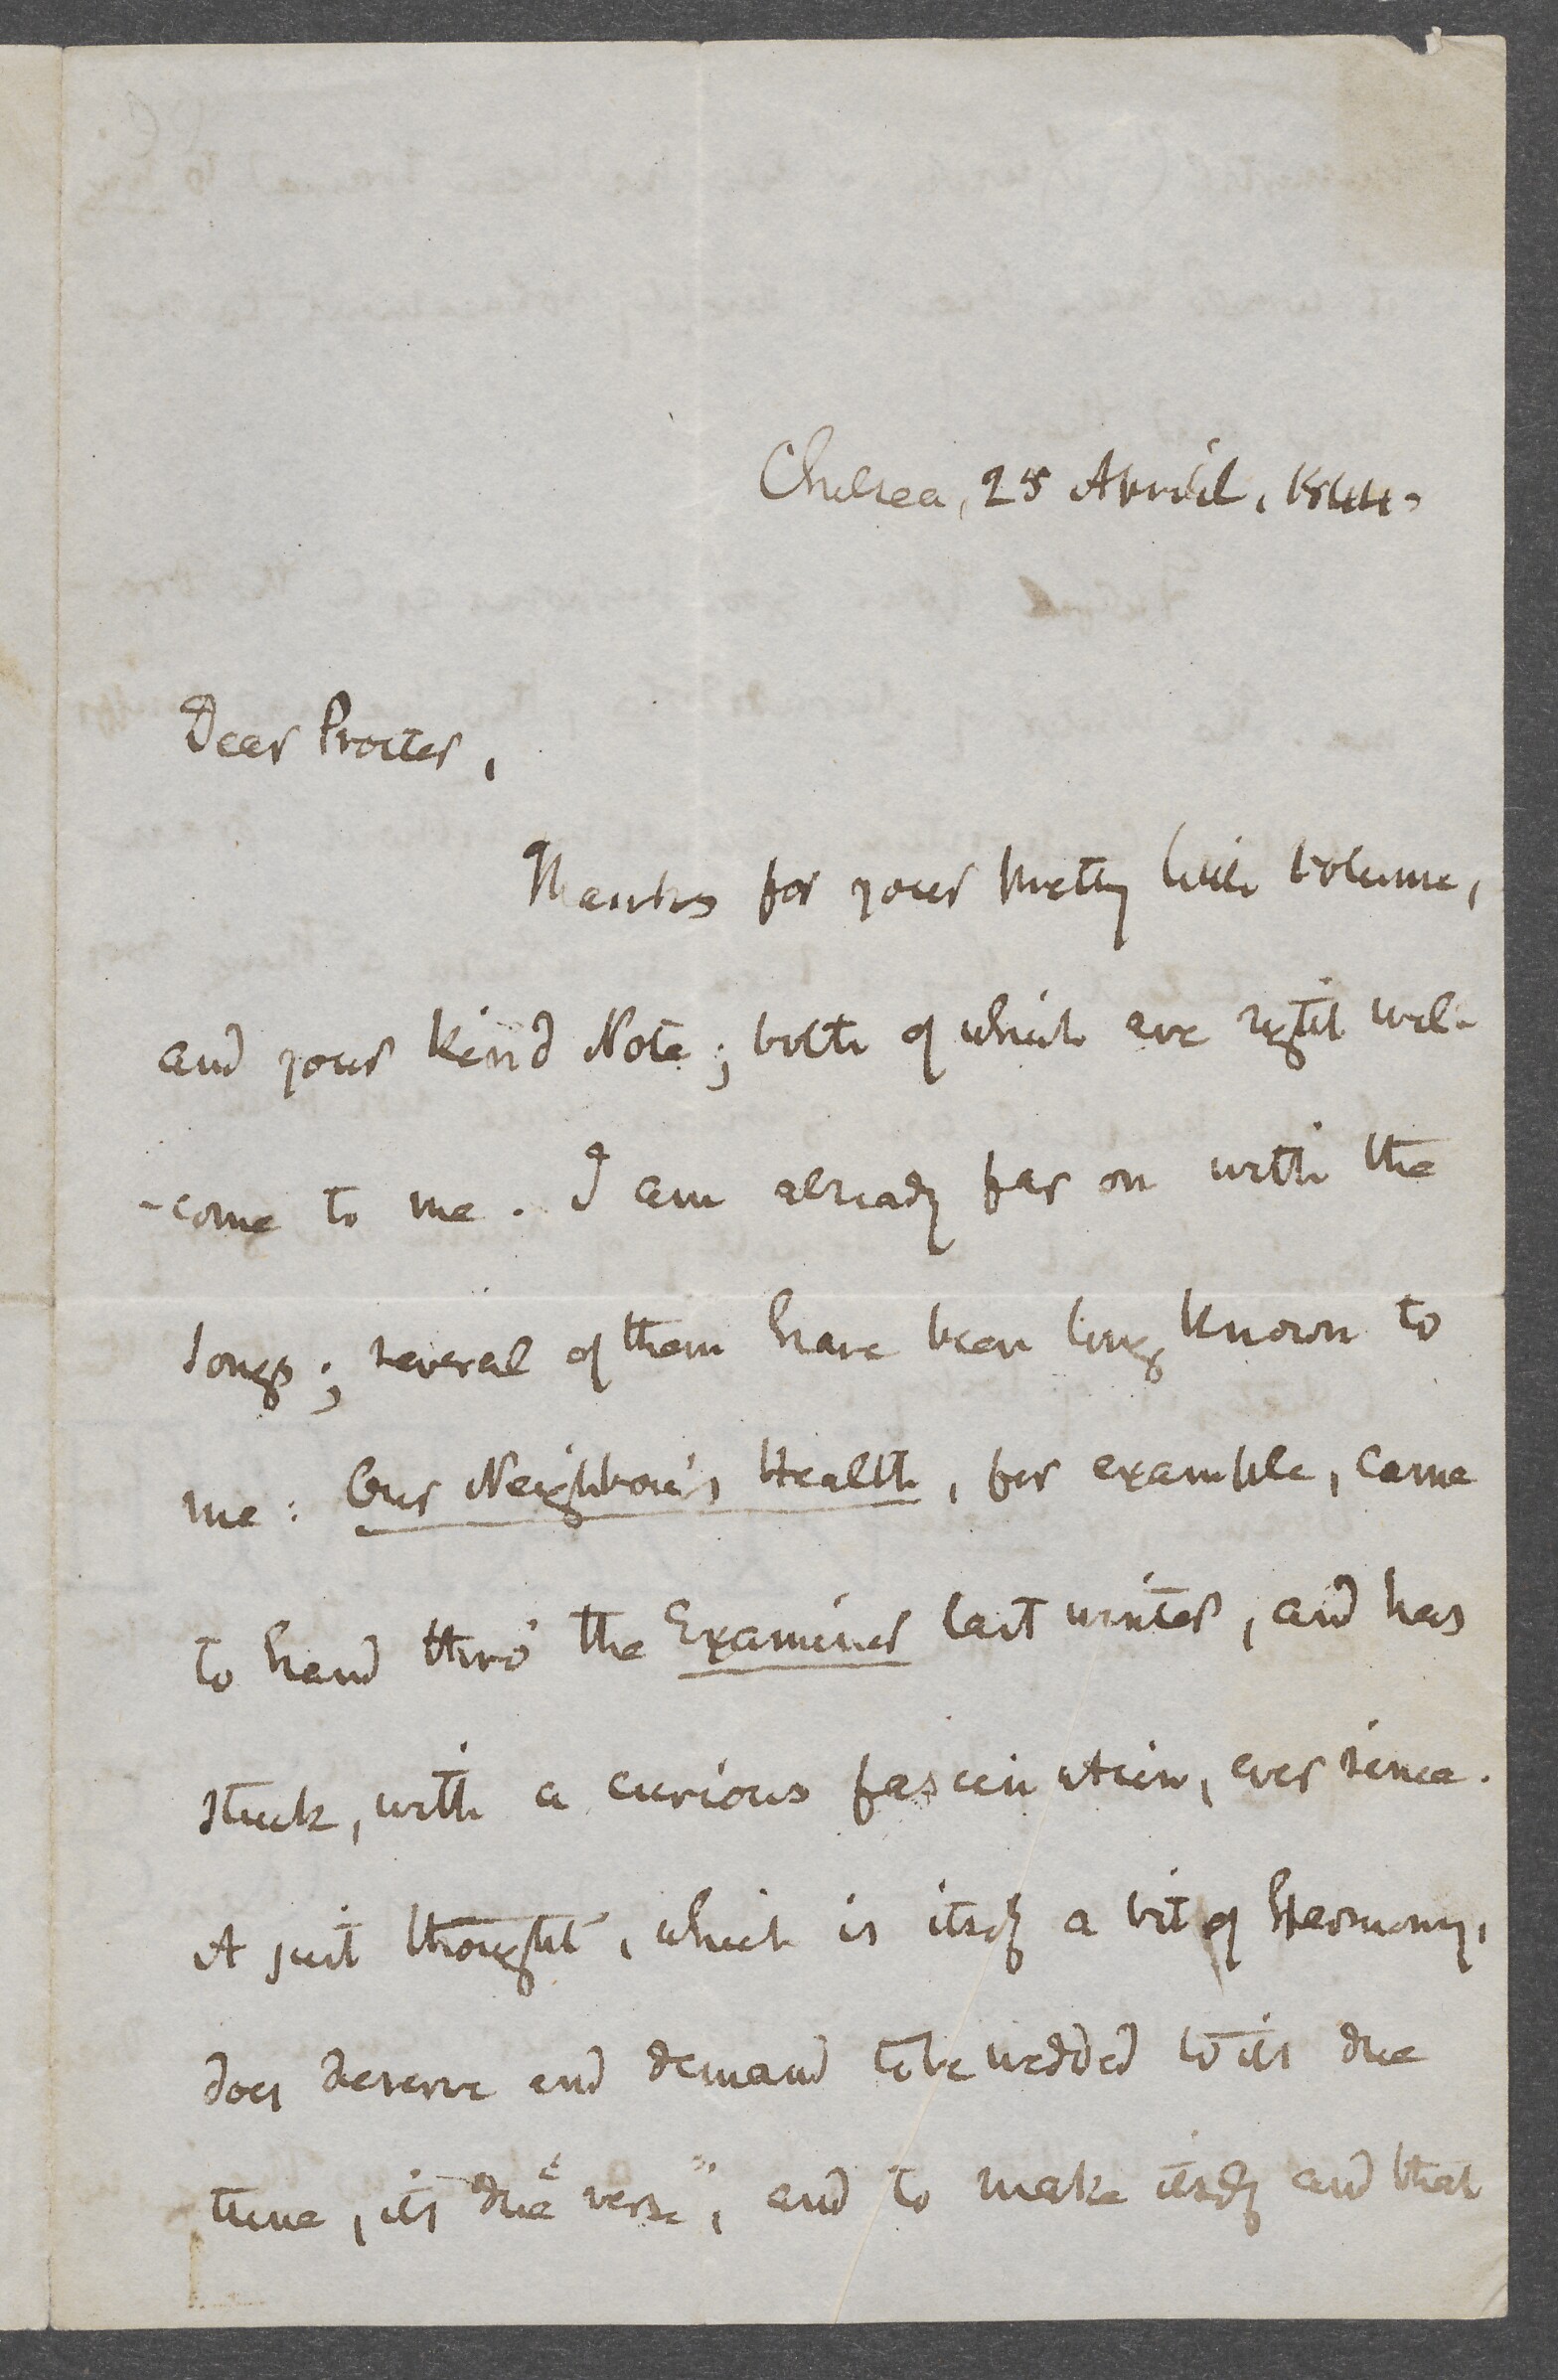 Chelsea, 25 April, 1844.
Dear Procter,
Thanks for your pretty little volume,
and your kind Note; both of which are right wel-
-come to me. I am already far on with the
Songs; several of them have been long known to
me: Our Neighbour's Health, for example, came
to hand thro' the Examiner last winter, and has
stuck, with a curious fascination, ever since.
A just thought, which is itself a bit of Harmony,
does deserve and demand to be wedded to its due
tune, its due "verse", and to make itself and that